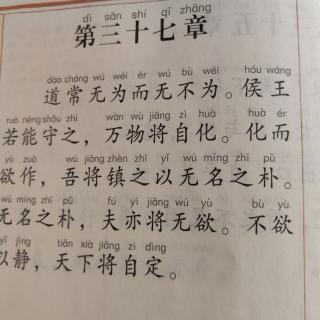 dì sān shí qī zhāng
第三十七章
dào cháng wú wéi ér wú bù wéi hóu wáng
道常无为而无不为。侯王
ruò néng shǒu zhī wàn wù jiāng zì huà huà ér
若能守之，万物将自化。化而
yù zuò wú jiāng zhèn zhī yǐ wú míng zhī pǔ
欲作，吾将镇之以无名之朴。
wú míng zhī pǔ fú yì jiāng wú yù bù yù
无名之朴，夫亦将无欲。不欲
yǐ jìng tiān xià jiāng zì dìng
以静，天下将自定。